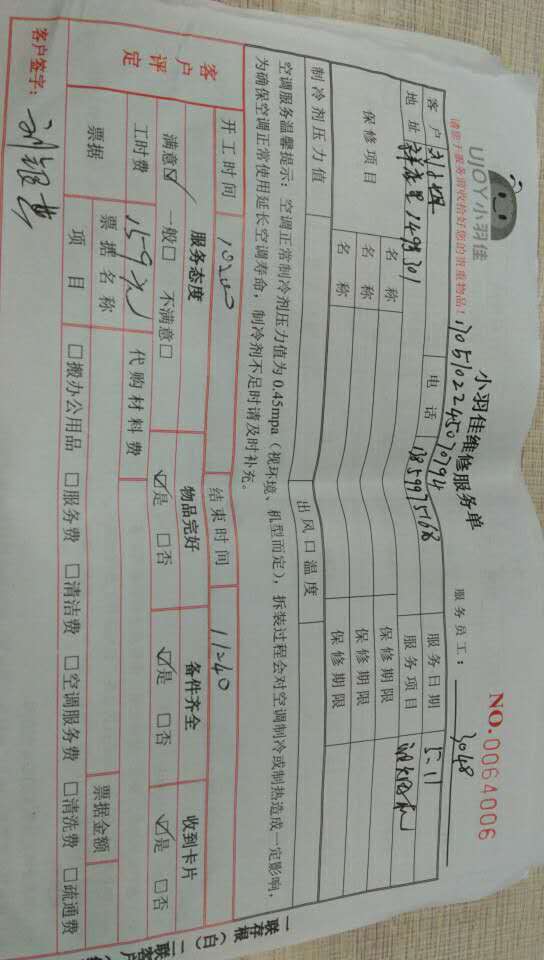 UJOY小羽佳
请您于服务前收拾好您的贵重物品！
小羽佳维修服务单
NO.0064006
服务员工： 3048
客户 电话 服务日期 5.11
地址 服务项目
保修项目 名称 保修期限
名称 保修期限
名称 保修期限
制冷剂压力值 出风口温度
空调服务温馨提示：空调正常制冷剂压力值为0.45mpa（视环境、机型而定），拆装过程会对空调制冷或制热造成一定影响，
为确保空调正常使用延长空调寿命，制冷剂不足时请及时补充。
开工时间 结束时间 11:40
客户评定 服务态度 物品完好 备件齐全 收到卡片
满意☑ 一般□ 不满意□ ☑是 □否 ☑是 □否 ☑是 □否
工时费 159元 代购材料费
票据 票据名称 票据金额
项目 □搬办公用品 □服务费 □清洁费 □空调服务费 □清洗费 □疏通费
客户签字：
一联存根（白）二联客户